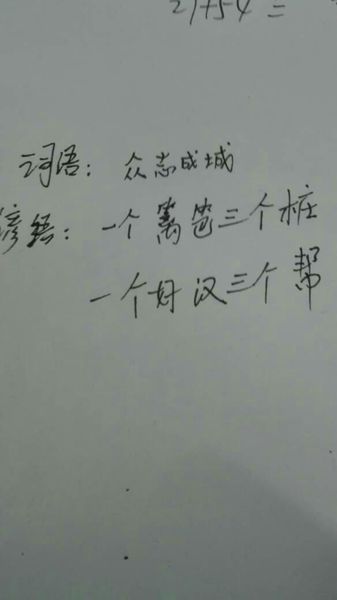 21+54=
词语：众志成城
谚语：一个篱笆三个桩
一个好汉三个帮